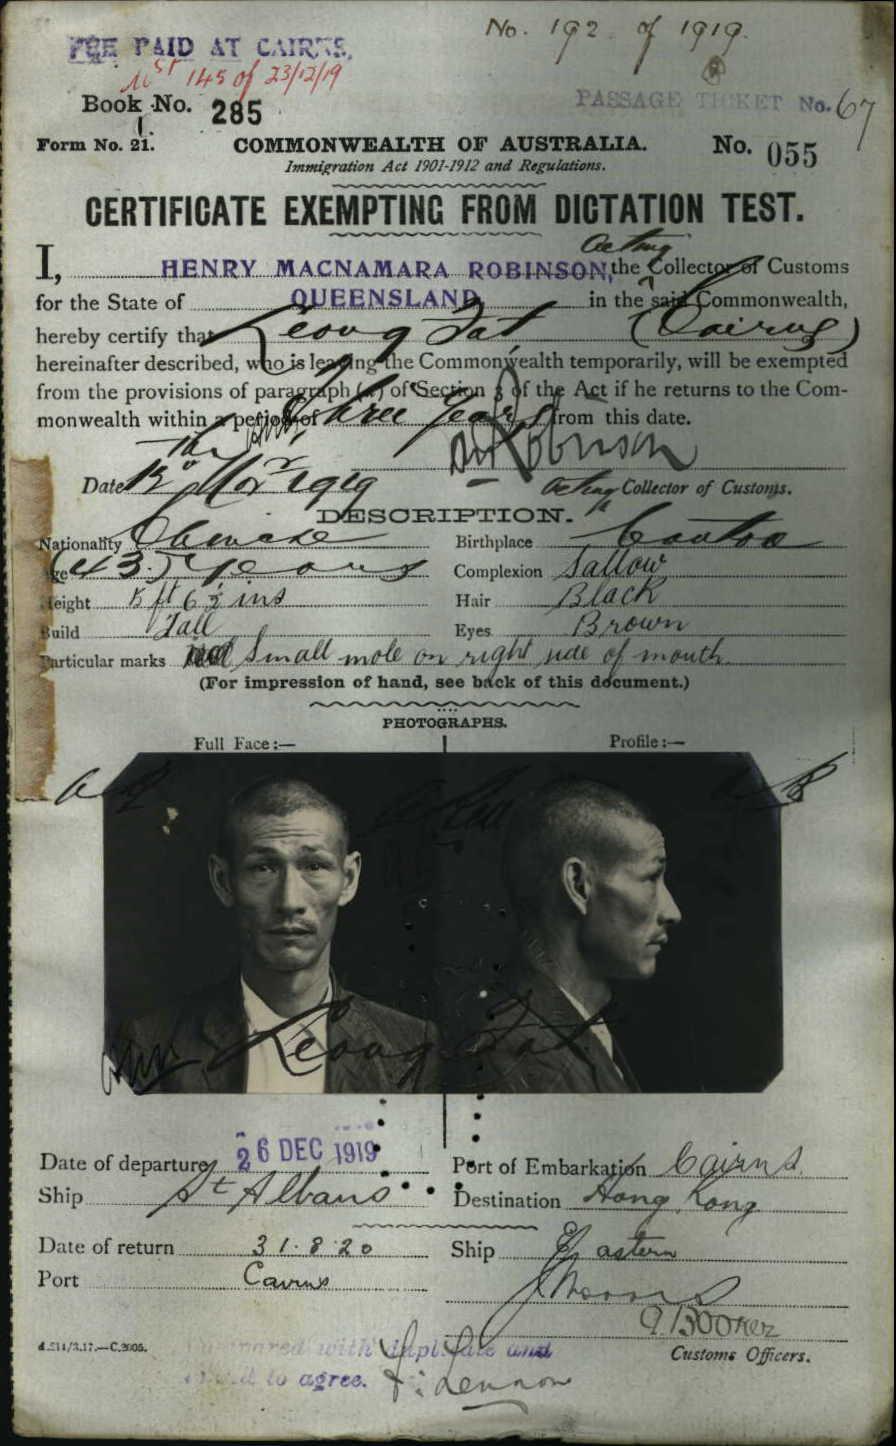 No. 192 of 1919.
FEE PAID AT CAIRNS.
145 of 23/12/19
PASSAGE TICKET No. 67
Book No. 285
1.
Form No. 21. COMMONWEALTH OF AUSTRALIA. No. 055
Immigration Act 1901-1912 and Regulations.
CERTIFICATE EXEMPTING FROM DICTATION TEST.
Acting
I, HENRY MACNAMARA ROBINSON, the Collector of Customs
for the State of QUEENSLAND in the said Commonwealth,
hereby certify that Leong Fat (Cairns)
hereinafter described, who is leaving the Commonwealth temporarily, will be exempted
from the provisions of paragraph (a) of Section 3 of the Act if he returns to the Com-
monwealth within a period of Three Years from this date.
Robinson
Date 12th Novr 1919 Acting Collector of Customs.
DESCRIPTION.
Nationality Chinese Birthplace Canton
Age (43) years Complexion Sallow
Height 5 ft 6½ ins Hair Black
Build Tall Eyes Brown
Particular marks Small mole on right side of mouth
(For impression of hand, see back of this document.)
PHOTOGRAPHS.
Full Face:— Profile:—
Leong Fat
Date of departure 26 DEC 1919 Port of Embarkation Cairns.
Ship St Albans Destination Hong Kong
Date of return 31.8.20 Ship Eastern
Port Cairns
Customs Officers.
Compared with duplicate and
found to agree.